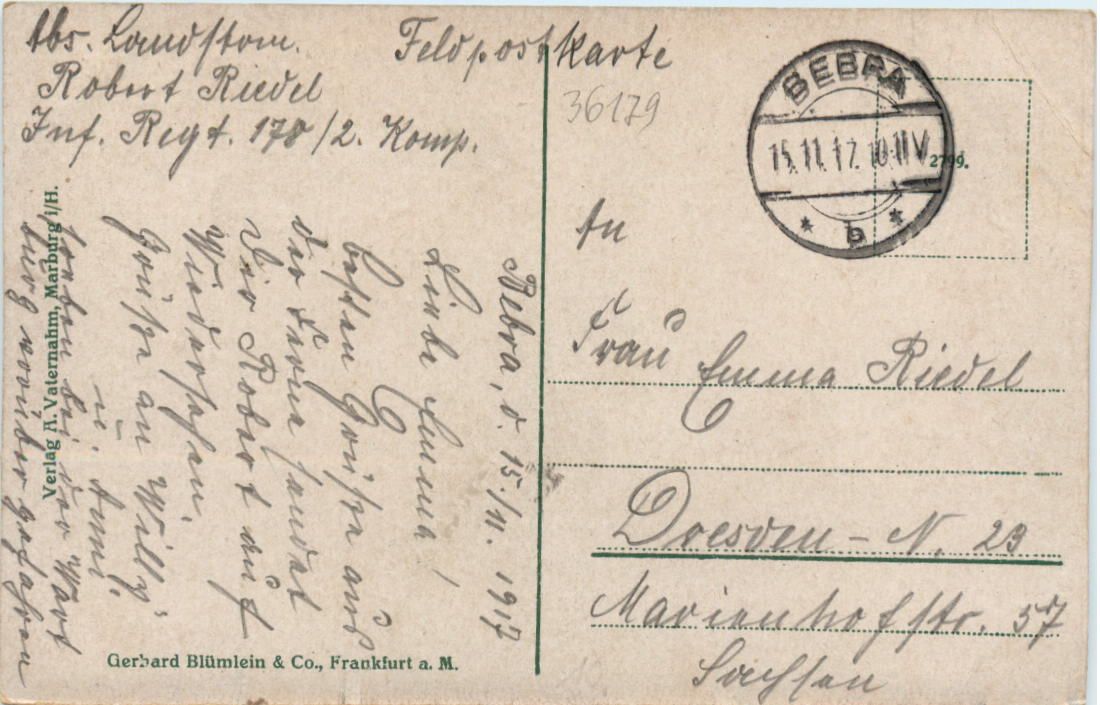 Abs. Landstrm.
Robert Riedel
Inf. Regt. 178/2. Komp.
Feldpostkarte
36179
BEBRA
15.11.17. 10-11 V.
* b *
2799.
An
Frau Emma Riedel
Dresden - N. 23
Marienhofstr. 57
Sachsen
Bebra, d. 15./11. 1917
Liebe Emma!
Besten Grüße aus
der Ferne sendet
Dir Robert auf
Wiedersehen.
Grüße an Willy
u. Ammi.
soeben bei der Wart
burg vorüber gefahren
Verlag A. Vaternahm, Marburg i/H.
Gerhard Blümlein & Co., Frankfurt a. M.